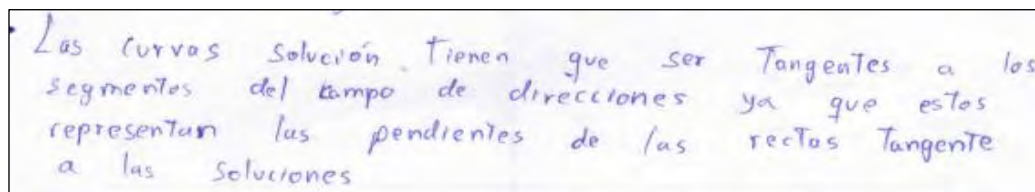 • Las curvas solución tienen que ser Tangentes a los
segmentos del campo de direcciones ya que estos
representan las pendientes de las rectas Tangente
a las soluciones